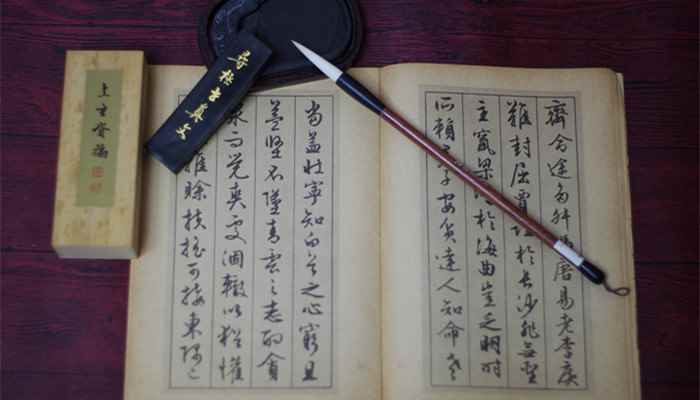 齊命途多舛唐易老李廣
難封屈賈於長沙非無聖
主竄梁於海曲豈乏明時
所賴子安貧達人知命老
當益壯寧知白首之心窮且
益堅不墜青雲之志酌貪
泉而覺爽處涸轍以猶懽
雖賒扶搖可接東隅已